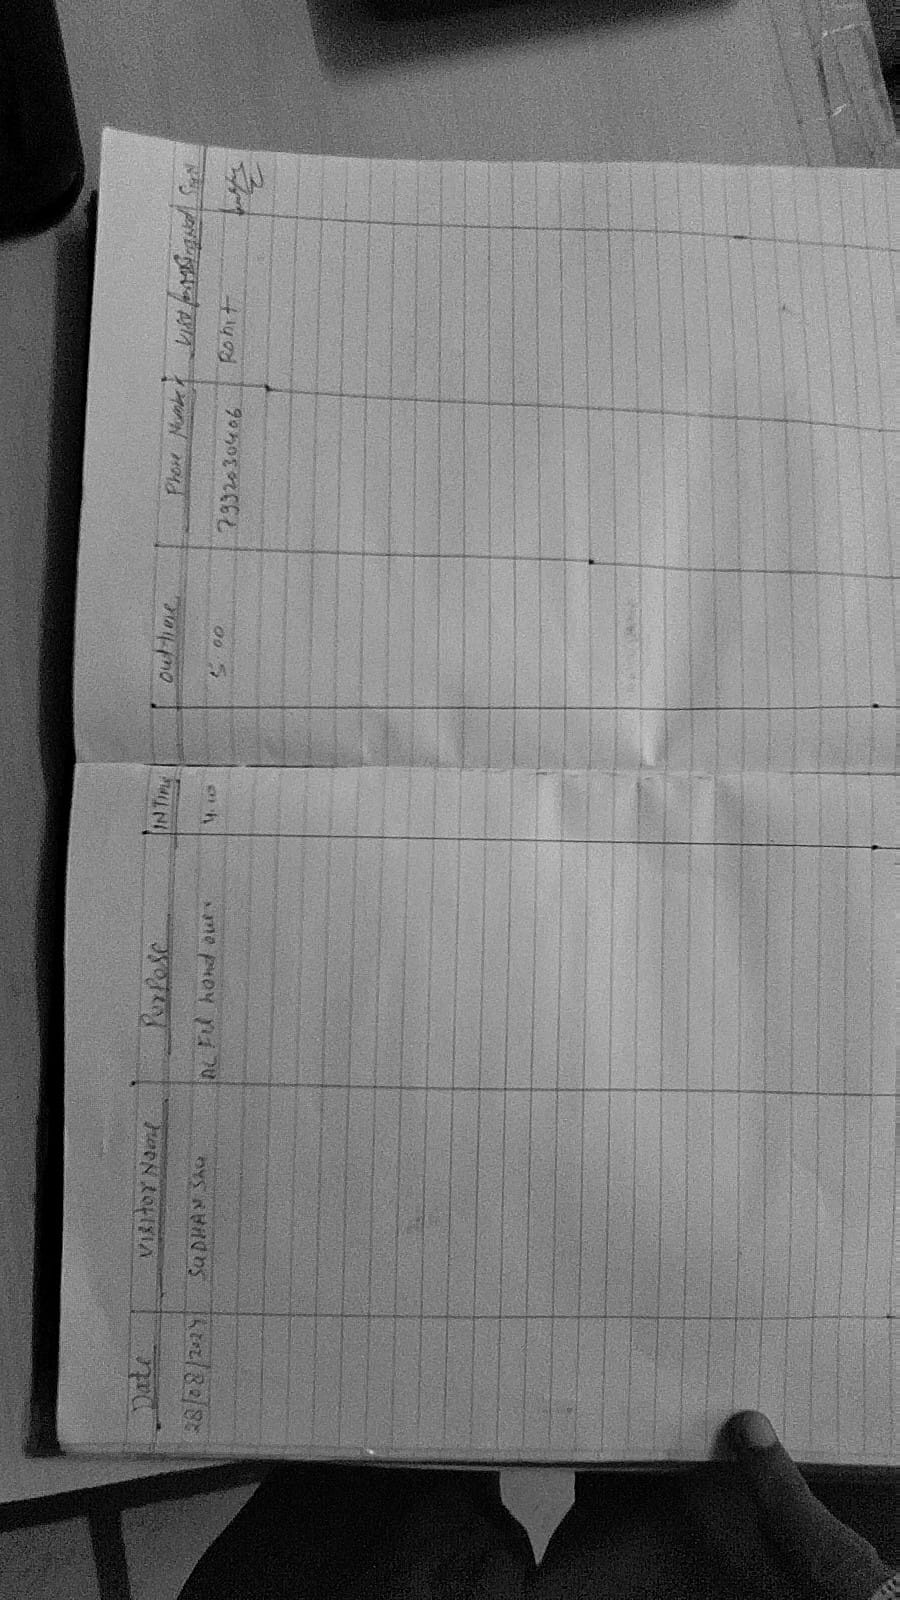 Date VISITOR Name PURPOSE INTime outtime Phone Number Sign
28/08/2024 SUDHAN SAU hand over. 4.00 5.00 7992030406 Rohit